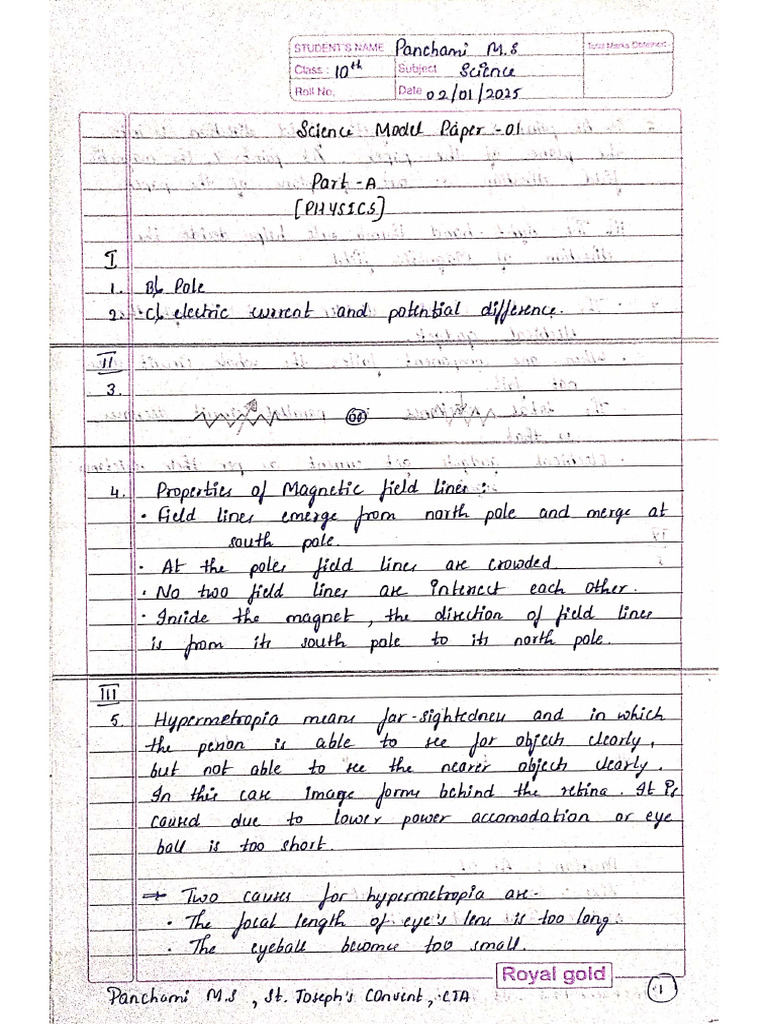 STUDENT'S NAME Panchami M.S Total Marks Obtained
Class: 10th Subject Science
Roll No. Date 02/01/2025
Science Model Paper -01
Part -A
[PHYSICS]
I
1. B) Pole
2. C) electric current and potential difference.
II
3.
4. Properties of Magnetic field lines :
• Field lines emerge from north pole and merge at
south pole.
• At the poles field lines are crowded
• No two field lines are intersect each other.
• Inside the magnet, the direction of field lines
is from its south pole to its north pole.
III
5. Hypermetropia means far-sightedness and in which
the person is able to see far objects clearly,
but not able to see the nearer objects clearly.
In this case image forms behind the retina. It is
caused due to lower power accomodation or eye
ball is too short.
→ Two causes for hypermetropia are-
• The focal length of eye's lens is too long.
• The eyeball becomes too small.
Royal gold
Panchami M.S, St. Joseph's Convent, CTA 1